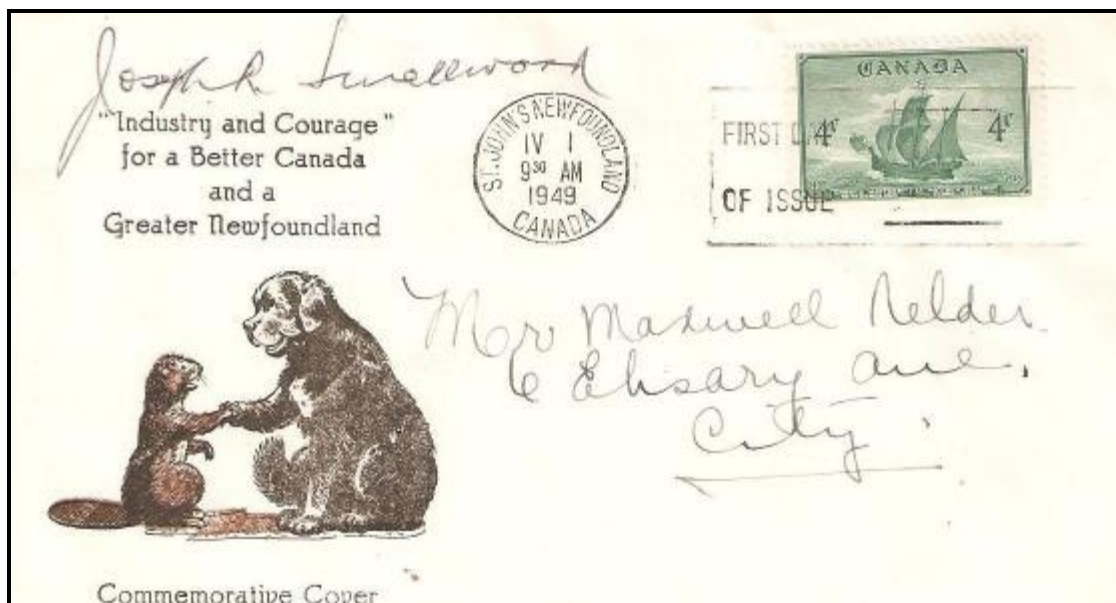 Joseph R Smallwood
"Industry and Courage"
for a Better Canada
and a
Greater Newfoundland
ST. JOHN'S NEWFOUNDLAND
IV 1
9³⁰ AM
1949
CANADA
CANADA
4¢ 4¢
FIRST DAY
OF ISSUE
Mr Maxwell
6 Ebsary Ave,
City.
Commemorative Cover